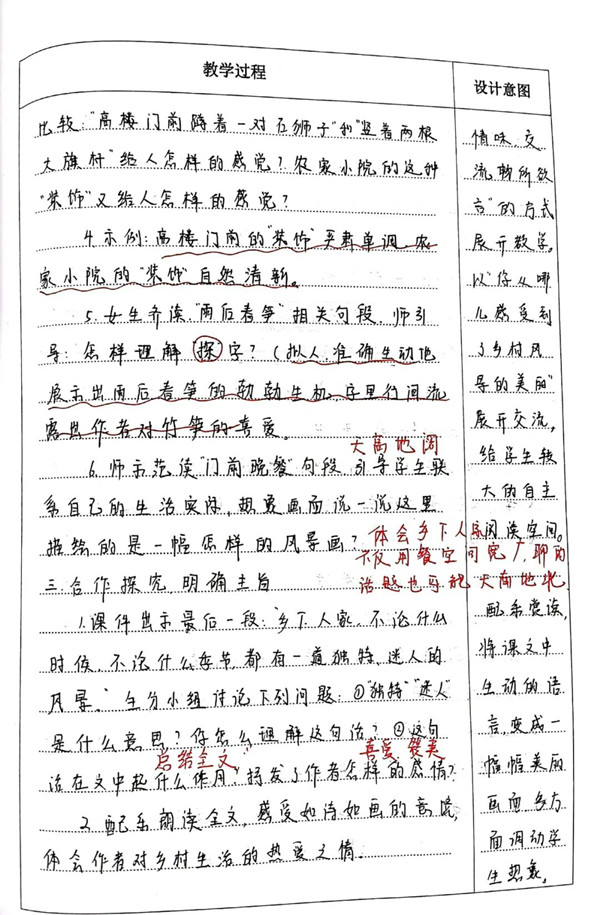 教学过程
比较:"高楼门前蹲着一对石狮子"和"竖着两根
大旗杆"给人怎样的感觉?农家小院的这种
"装饰"又给人怎样的感觉?
4.示例:高楼门前的"装饰"单调,农
家小院的"装饰"自然清新。
5.女生齐读"雨后春笋"相关句段,师引
导:怎样理解"探"字?(拟人,准确生动地
展示出雨后春笋的勃勃生机,字里行间流
露出作者对竹笋的喜爱。
天高地阔
6.师示范读"门前晚餐"句段,引导学生联
系自己的生活实际,想象画面说一说这里
描绘的是一幅怎样的风景画?
体会乡下人家
不仅用餐空间宽广,聊的
话题也可能天南地北。
三.合作探究,明确主旨
1.课件出示最后一段:"乡下人家,不论什么
时候,不论什么季节都有一道独特、迷人的
风景。"生分小组讨论下列问题:①"独特""迷人"
是什么意思?你怎么理解这句话?②这句
总结全文
喜爱 赞美
话在文中起什么作用?抒发了作者怎样的感情?
2.配乐朗读全文,感受如诗如画的意境,
体会作者对乡村生活的热爱之情。
设计意图
情味,交
流畅所欲
言"的方式
展开教学。
以"你从哪
儿感受到
了乡村风
景的美丽"
展开交流,
给学生较
大的自主
阅读空间。
配乐赏读,
将课文中
生动的语
言,变成一
幅幅美丽
画面多方
面调动学
生想象。